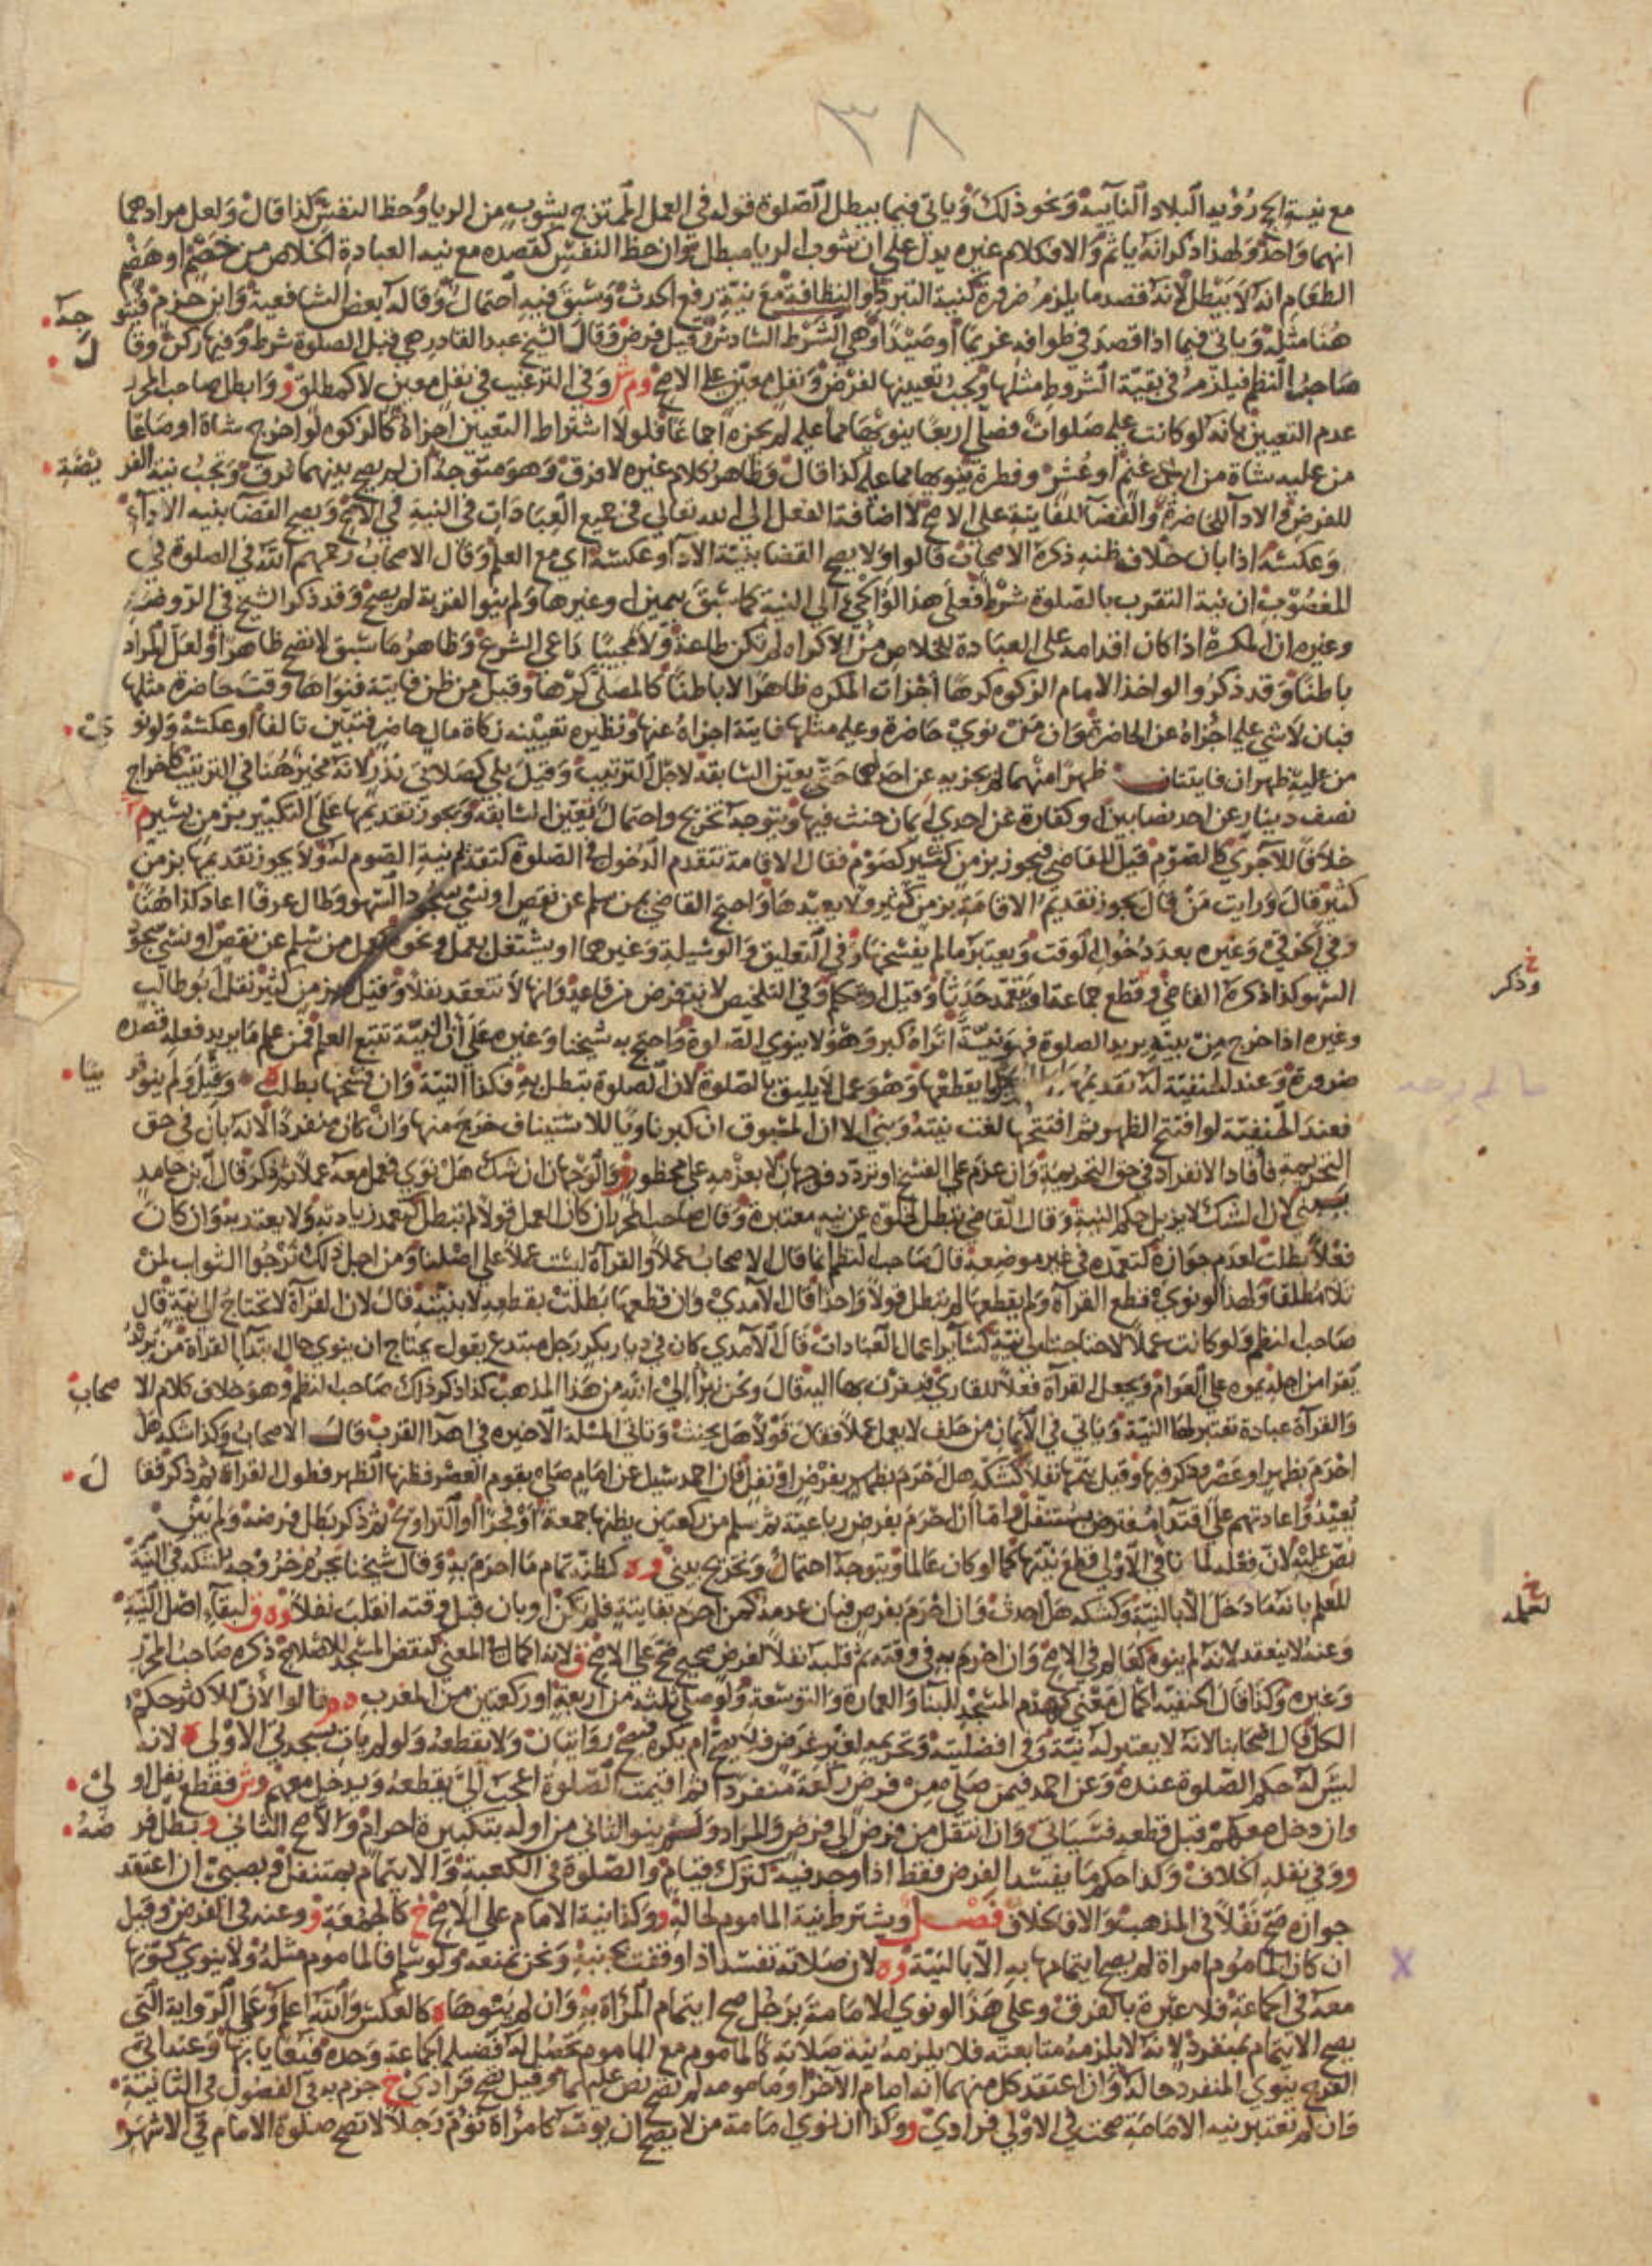 ٣٨
مع نية الحج رؤية البلاد النائية ونحو ذلك وياتي فيما يبطل الصلوة قوله في العمل الممتزج بشوب من الريا وحظ النفس كذا قال ولعل مرادهما
انهما واحد ولهذا ذكر انه ياثم والا فكلام غيره يدل على ان شوب الريا مبطل وان حظ النفس كقصده مع نية العبادة الخلاص من خصم او هضم
الطعام انه لا يبطل لانه قصد ما يلزم ضرورة كنية التبرد او النظافة مع نية رفع الحدث وسبق فيه احتمال وقاله بعض الشافعية وابن حزم فيتوجه
هنا مثله وياتي فيما اذا قصد في طوافه غريما او صيدا وهي الشرط السادس وقيل فرض وقال الشيخ عبد القادر هي قبل الصلوة شرط وفيها ركن وقال
صاحب النظم فيلزم في بقية الشروط مثلها ويجب تعيينها لفرض ونفل معين على الاصح وم ش وفي الترغيب في نفل معين لا كمطلق و وابطل صاحب المحرر
عدم التعيين بانه لو كانت عليه صلوات فصلى اربعا ينويها مما عليه لم يجزه اجماعا فلولا اشتراط التعيين اجزاه كالزكوه لو اخرج شاة او صاعا
من عليه شاة من ابل غنم او عشر وفطرة ينويها مما عليه كذا قال وظاهر كلام غيره لا فرق وهو متوجه ان لم يصح بينهما فرق وتجب نية الفرضية
للفرض والادا للحاضرة والقضا للفايتة على الاصح لا اضافة الفعل الى الله تعالى في جميع العبادات في النية في الاصح ويصح القضا بنيه الادآء
وعكسه اذا بان خلاف ظنه ذكره الاصحاب قالوا ولا يصح القضا بنية الادا وعكسه اي مع العلم وقال الاصحاب رحمهم الله في الصلوة في
المغصوب ان نية التقرب بالصلوة شرط فعلى هذا لو الجئ الى النية كما سبق بيمين او غيرها ولم ينو القربة لم يصح وقد ذكر الشيخ في الروضة
وغيره ان المكره اذا كان اقدامه على العبادة للخلاص من الاكراه لم تكن طاعة ولا مجيبا داعي الشرع وظاهر ما سبق لا تصح ظاهرا ولعل المراد
باطنا وقد ذكروا لو اخذ الامام الزكوه كرها اجزات المكره ظاهرا لا باطنا كالمصلى كرها وقيل من ظن فايتة فنواها وقت حاضرة مثلها
فبان لا شي عليه اجزاه عن الحاضرة وان من نوى حاضرة وعليه مثلها فايتة اجزاه عنها ونظيره تعيينه زكاة مال حاضر فتبين تالفا او عكسه ولو نوى
من عليه ظهران فايتتان ظهرا منهما لم يجزيه عن احدهما حتى يعين السابقة لاجل الترتيب وقيل بلى كصلاتي نذر لانه مخير هنا في الترتيب كاخراج
نصف دينار عن احد نصابين او كفارة عن احدى ايمان حنث فيها ويتوجه تخريج واحتمال تعين السابقة ويجوز تقديمها على التكبير بزمن يسير م
خلافا للآجري كالصوم قيل للقاضي فيجوز بزمن كثير كصوم فقال الاقامة تتقدم الدخول في الصلوة كتقديم نية الصوم له ولا يجوز تقديمها بزمن
كثير قال ورايت من قال يجوز تقديم الاقامة بزمن كثير ولا يعيدها واحتج القاضي بمن سلم عن نقص او نسي سجود السهو وطال عرفا اعاد كذا هنا
وفي الخرقي وغيره بعد دخول الوقت ويعتبر ما لم يفسخها وفي التعليق والوسيلة وغيرهما او يشتغل بعمل ونحوه كعمل من سلم عن نقص او نسي سجود
خ
وذكر
السهو كذا ذكره القاضي وقطع جماعة او يتعمد حدثا وقيل او يتكلم وفي التلخيص لا يتعرض من قاعد وانها لا تنعقد نفلا وقيل بزمن كثير نقل ابو طالب
وغيره اذا خرج من بيته يريد الصلوة فهو نية اتراه كبر وهو لا ينوي الصلوة واحتج به شيخنا وغيره على ان النية تتبع العلم فمن علم ما يريد فعله قصده
ضرورة وعند الحنفية له تقديمها
يقطعها وهو عمل لا يليق بالصلوة لان الصلوة تبطل به فكذا النية وان فسخها بطلت وقيل ولم ينو قريبا
فعند الحنفية لو افتتح الظهر ثم افتتحها لغت نيته وبنى الا ان المسبوق ان كبر ناويا للاستيناف خرج منها وان كان منفردا لانه بان في حق
التحريمة فافاد الانفراد في حق التحريمة وان عزم على الفسخ او تردد فوجهان لا بعزمه على محظور و والوجهان ان شك هل نوى فعمل معه عملا ثم ذكر قال ابن حامد
يبني لان الشك لا يزيل حكم النية وقال القاضي تبطل لخلوه عن نيه معتبرة وقال صاحب المحرر ان كان العمل قولا لم تبطل كتعمد زيادته ولا يعتد به وان كان
فعلا بطلت لعدم جوازه كتعمده في غير موضعه قال صاحب النظم انما قال الاصحاب عملا والقرآة ليست عملا على اصلنا ومن اجل ذلك نرجو الثواب لمن
تلا مطلقا ولهذا لو نوى قطع القرآة ولم يقطعها لم تبطل قولا واحدا قال الآمدي وان قطعها بطلت بقطعه لا بنيته قال لان القرآة لا تحتاج الى نية قال
صاحب النظم ولو كانت عملا لاحتاجت الى نية كسآير اعمال العبادات قال الآمدي كان في ديار بكر رجل مبتدع يقول يحتاج ان ينوي حال ابتدآ القراة من يريد
يقرا من اجله يموه على العوام ويجعل القرآة فعلا للقاري بها اليه قال ونحن نبرأ الى الله من هذا المذهب كذا ذكر ذلك صاحب النظم وهو خلاف كلام الاصحاب
والقرآة عبادة تعتبر لها النية وياتي في الايمان من حلف لا يعمل عملا فقال قولا هل يحنث وتاتي المسئلة الاخيره في اهدآ القرب قال الاصحاب وكذا شكه هل
احرم بظهر او عصر وذكر فيها وقيل يتمها نفلا كشكه هل احرم بظهر بفرض او نفل فان احمد سيل عن امام صلى بقوم العصر فظنها الظهر فطول القرآة ثم ذكر فقال
يعيد واعادتهم على اقتدآ مفترض بمتنفل واما ان احرم بفرض رباعية ثم سلم من ركعتين يظنها جمعة او فجرا او التراويح ثم ذكر بطل فرضه ولم يبن
نص عليه لان فعله لما نافى الاولى قطع نيتها كما لو كان عالما ويتوجه احتمال وتخريج يبني و ه كظنه تمام ما احرم به وقال شيخنا يحرم خروجه لشكه في النية
خ
لعمله
للعلم بانه ما دخل الا بالنية وكشكه هل احدث وان احرم بفرض فبان عدمه كمن احرم بفايتة فلم تكن او بان قبل وقته انقلب نفلا و ه ق لبقآء اصل النية
وعنه لا ينعقد لانه لم ينوه كعالم في الاصح وان احرم به في وقته ثم قلبه نفلا لغرض صحيح صح على الاصح ق لانه اكمال في المعنى كنقض المسجد للاصلاح ذكره صاحب المحرر
وغيره وكذا قال الحنفية اكمال معنى كهدم المسجد للبنآ والعمارة والتوسعة ولو صلى ثلثة من اربعة او ركعتين من المغرب قالوا لان للاكثر حكم
الكل قال اصحابنا لانه لا يعتبر له نية وفي افضليته وتحريمه لغير غرض فلا يصح ام يكره فيصح روايتان ولا يقطعه ولو لم يات بسجدتي الاولى ه لانه
ليس له حكم الصلوة عنده وعن احمد فيمن صلى من فرض ركعة منفردا ثم اقيمت الصلوة اعجب الى يقطعه ويدخل معهم و ش فقطع نفل اولى
وان دخل معهم قبل قطعه فسياتي وان انتقل من فرض الى فرض والمراد ولم ينو الثاني من اوله بتكبيرة احرام والا صح الثاني و بطل فرضه
و وفي نفله الخلاف وكذا حكم ما يفسد الفرض فقط اذا وجد فيه كترك قيام والصلوة في الكعبة والايتمام بمتنفل وبصبي ان اعتقد
جوازه صح نفلا في المذهب والا فالخلاف فصل ويشترط نية الماموم لحاله و وكذا نية الامام على الاصح خ كالجمعة و وعنه في الفرض وقيل
ان كان الماموم امراة لم يصح ايتمامها به الا بالنية و ه لان صلاته تفسد اذا وقفت بجنبه ونحن نمنعه ولو سلم فالماموم مثله ولا ينوي كونها
معه في الجماعة فلا عبرة بالفرق وعلى هذا لو نوى الامامة برجل صح ايتمام المرأة به وان لم ينوها كالعكس والله اعلم وعلى الرواية التي
يصح الايتمام بمنفرد لانه لا يلزمه متابعته فلا يلزمه نية صلاته كالماموم مع الماموم تحصل له فضيلة الجماعة وحده فيعايا بها وعند ابي
الفرج ينوي المنفرد حاله وان اعتقد كل منهما انه امام الآخر او مامومه لم تصح نص عليهما وقيل تصح فرادى خ جزم به في الفصول في الثانية
وان لم تعتبر نيه الامامة صحت في الاولى فرادى و وكذا ان نوى امامة من لا يصح ان يؤمه كامراة تؤم رجلا لا تصح صلوة الامام في الاشهر